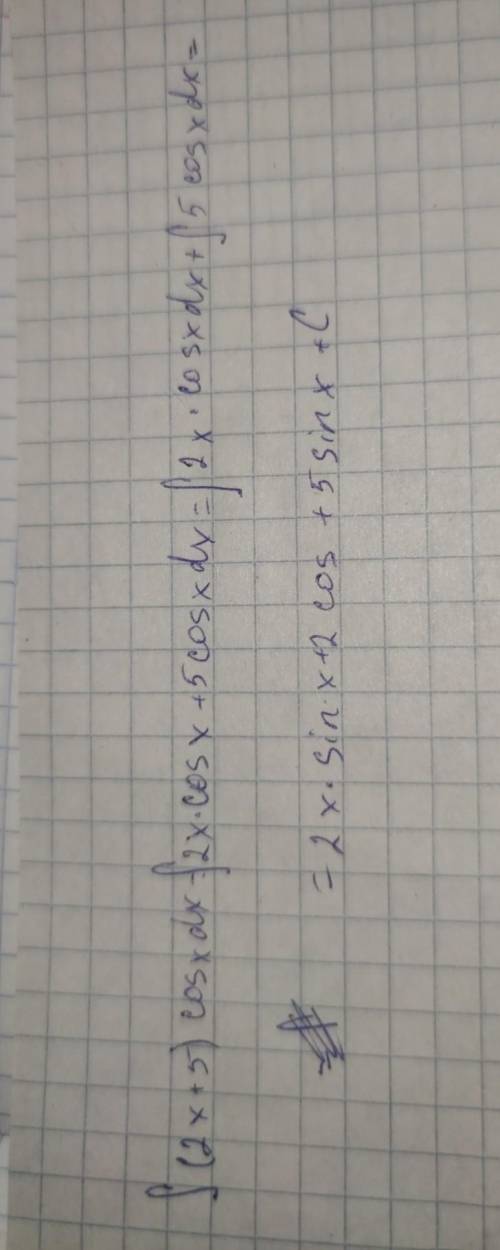 ∫(2x+5) cosx dx = ∫2x·cosx+5cosx dx = ∫2x·cosx dx + ∫5 cosx dx =
= 2x·sin x+2 cos +5 sin x + C